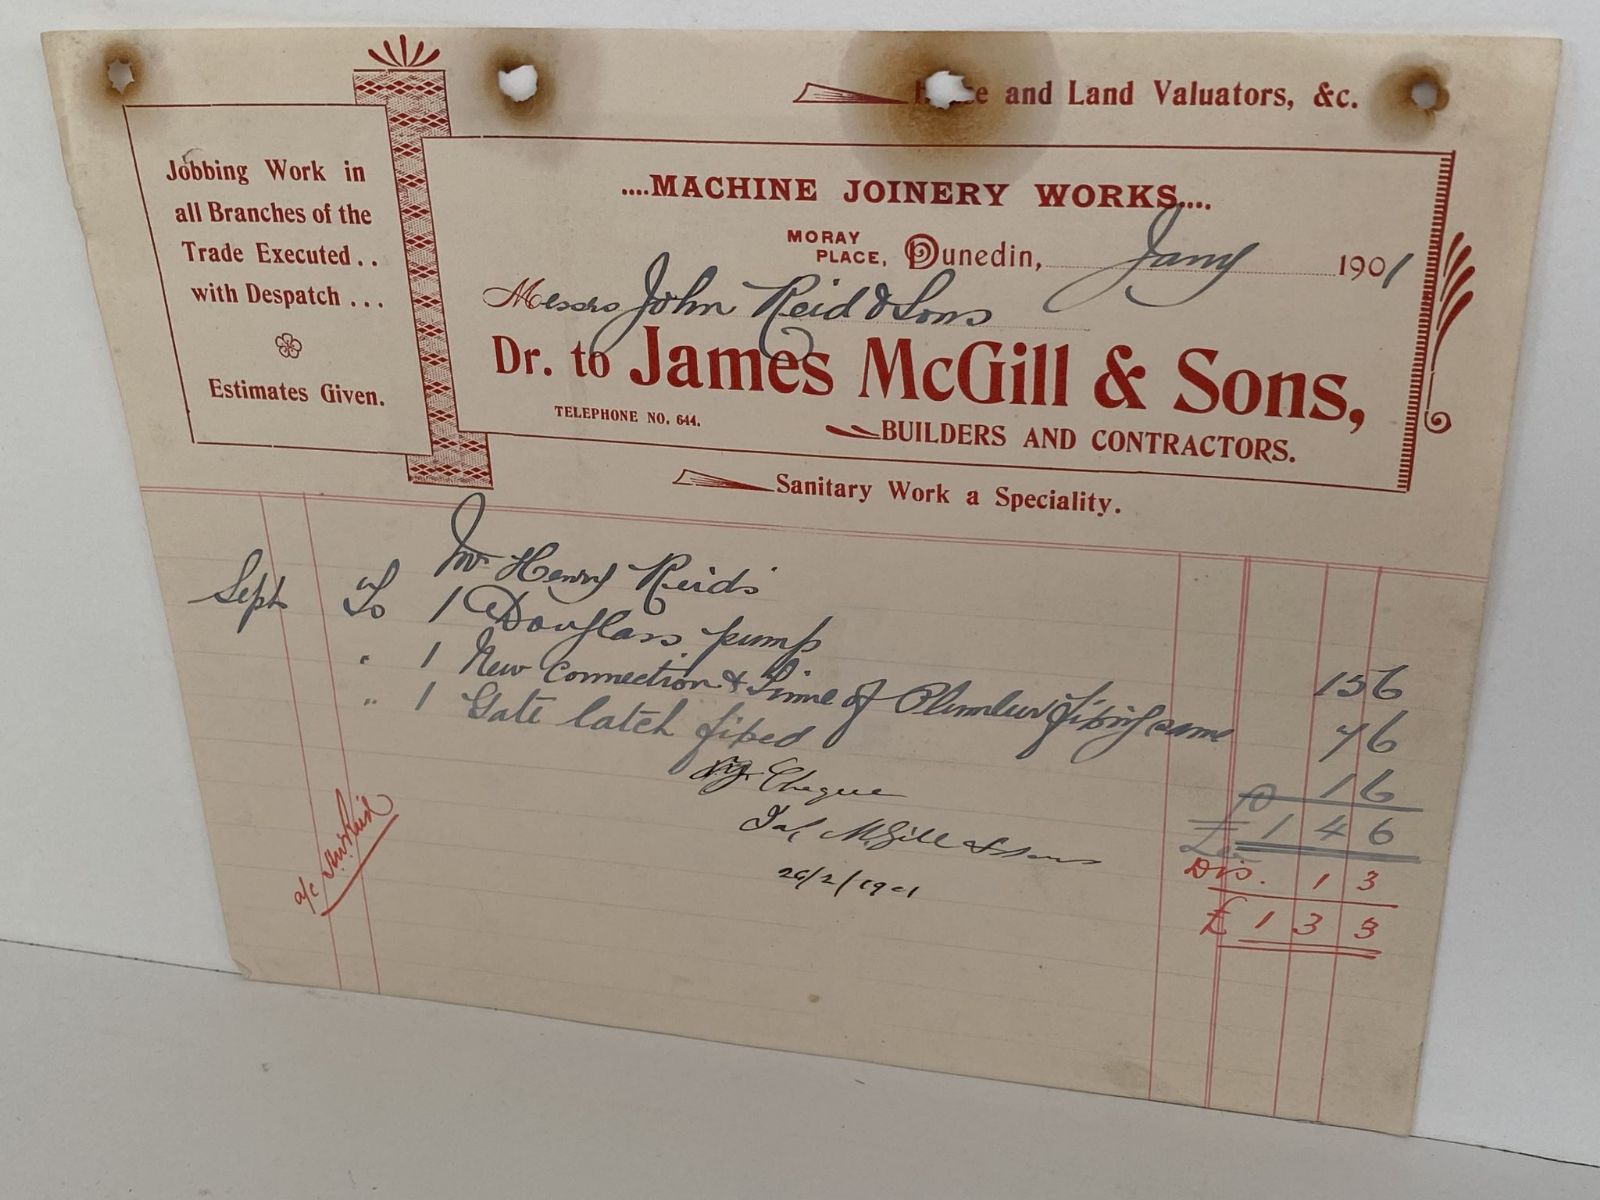 and Land Valuators, &c.
Jobbing Work in
all Branches of the
Trade Executed..
with Despatch...
Estimates Given.
....MACHINE JOINERY WORKS....
MORAY PLACE, Dunedin, Jany 1901
Messrs John Reid & Sons
Dr. to James McGill & Sons,
TELEPHONE NO. 644.
BUILDERS AND CONTRACTORS.
Sanitary Work a Speciality.
Mr Henry Reids
Sept To 1 Douglass pump 15 6
" 1 New Connection & Time of Plumber fixing same 7 6
" 1 Gate latch fixed 1 6
£ 1 4 6
Cheque
Jas McGill & Sons
Dis. 1 3
£ 1 3 3
a/c Reid